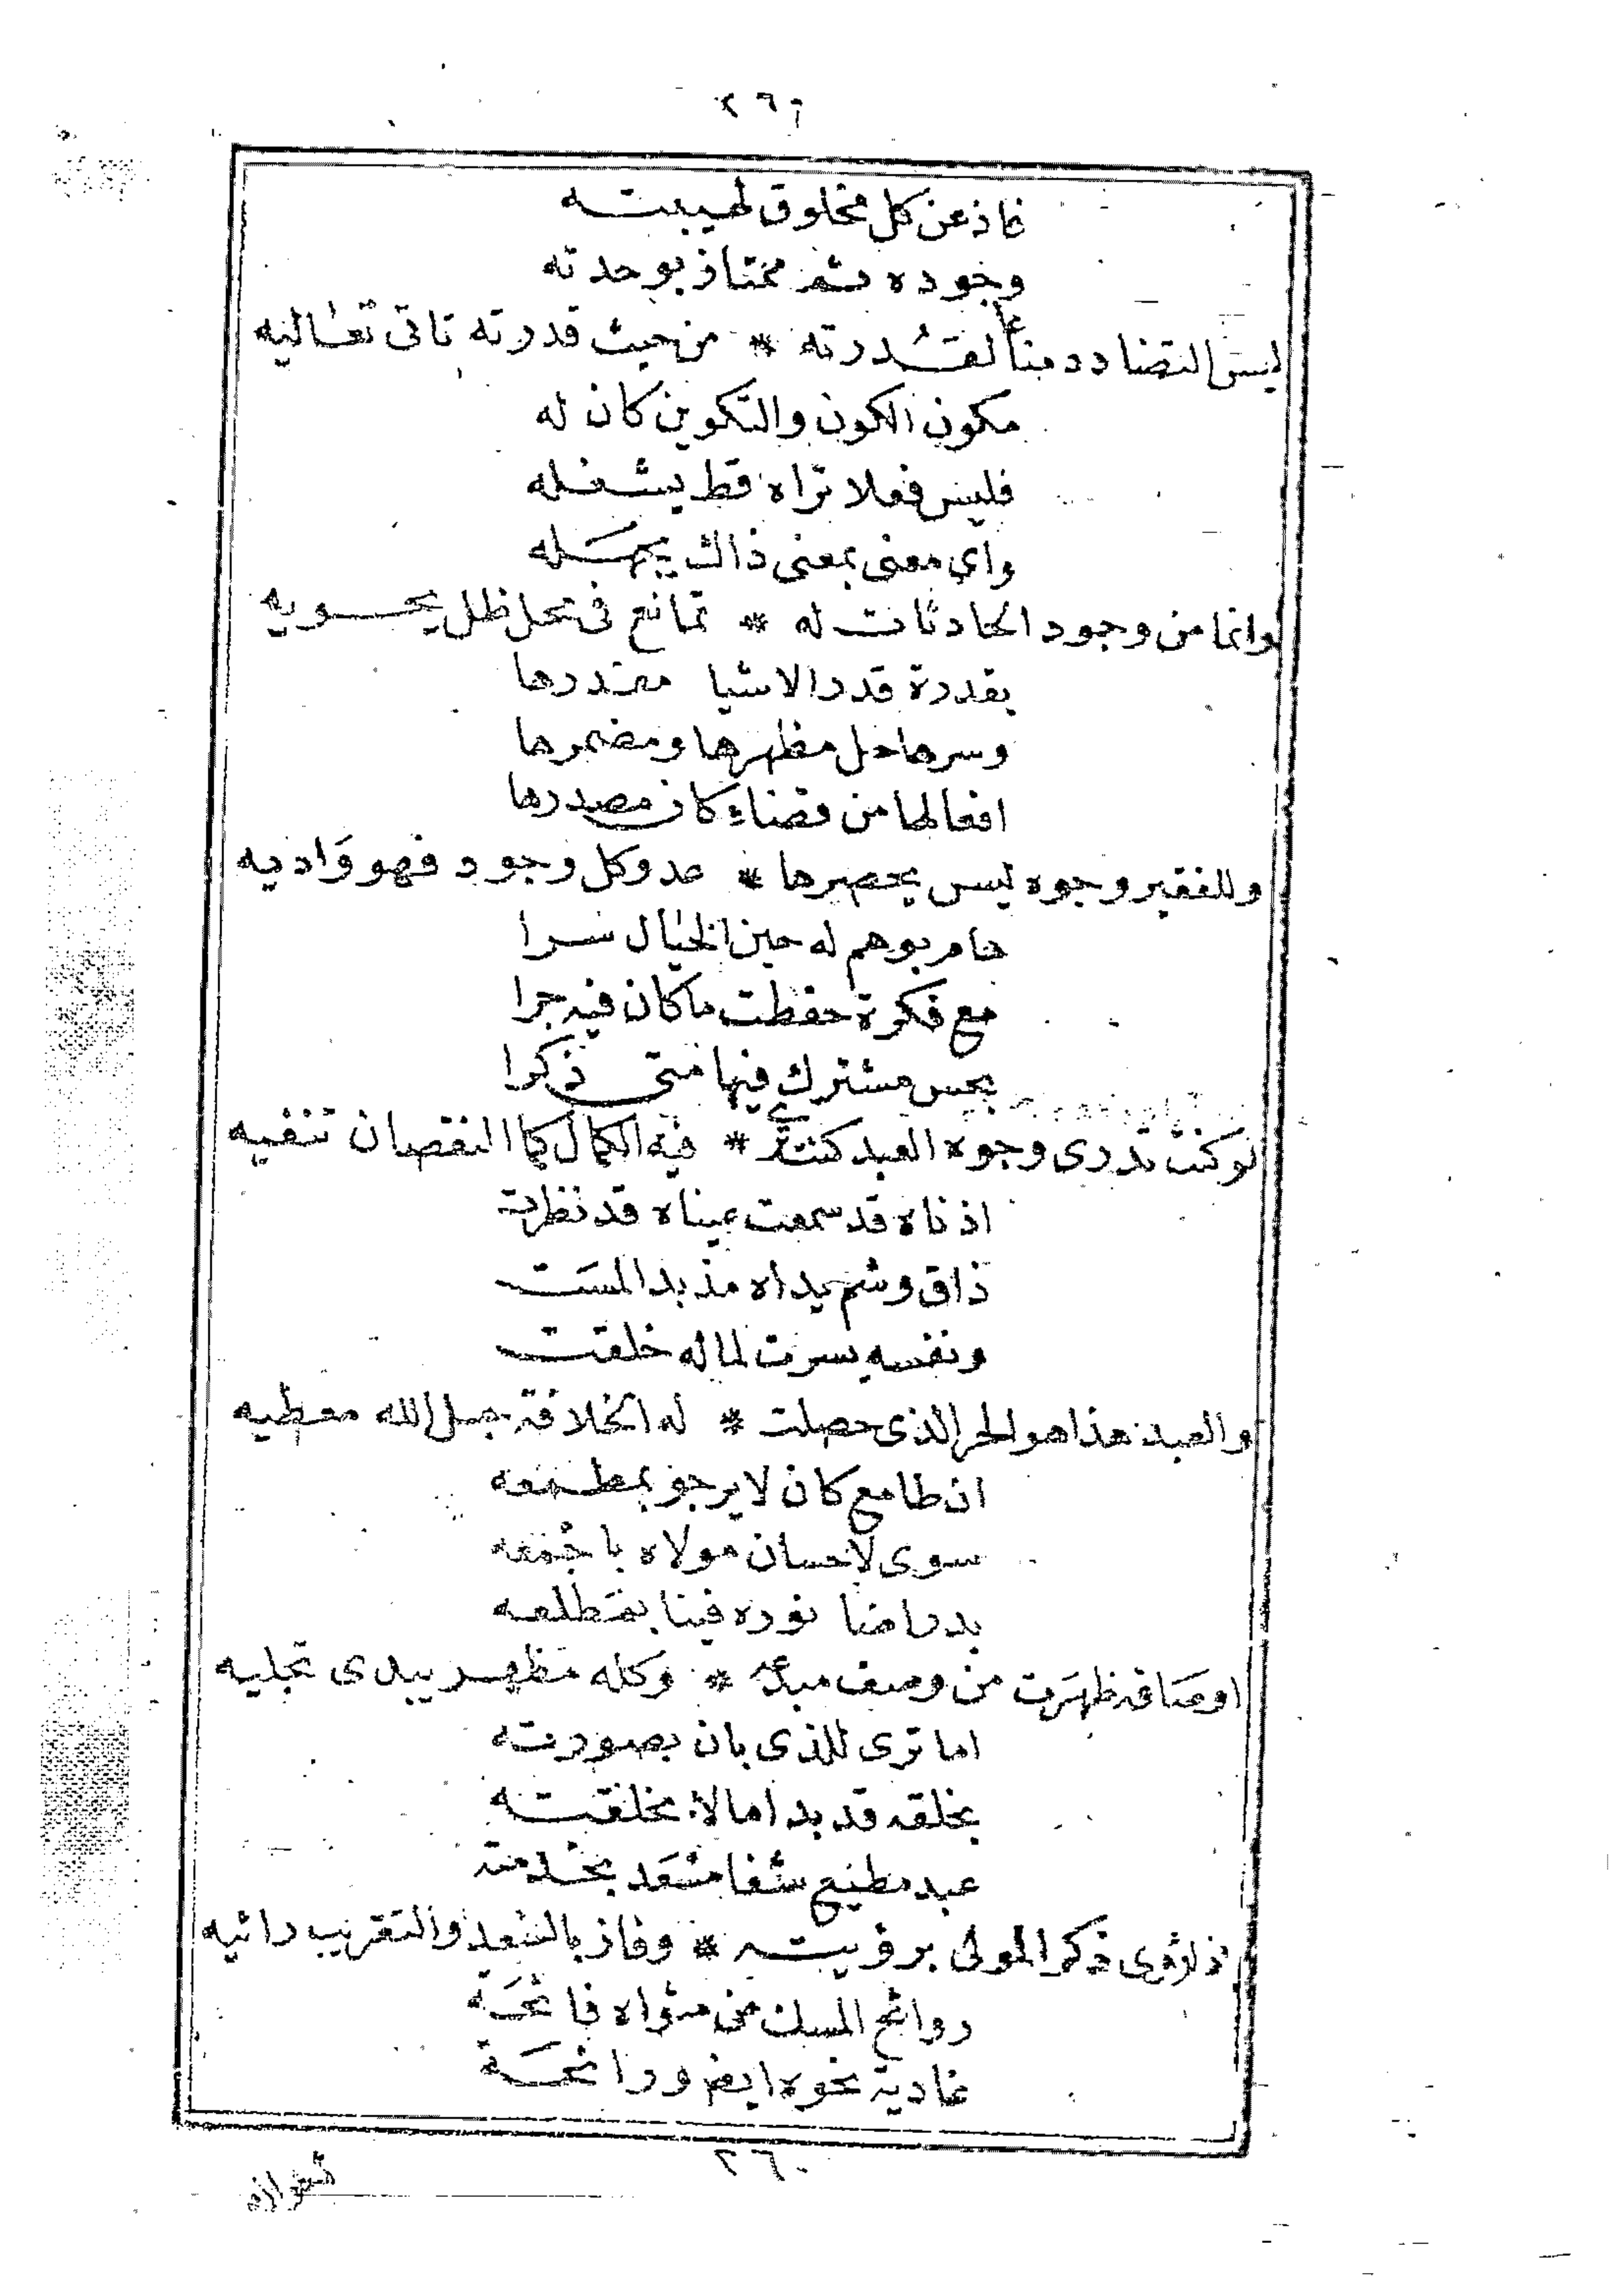 ٢٦٦
عاذ عن كل مخلوق لهيبته
وجوده ثم ممتاز بوحدته
ليس التضادد مناعا لقدرته * من حيث قدرته تاتى تعاليه
مكون الكون والتكوين كان له
فليس فعلا تراه قط يشغله
واي معنى بمعنى ذاك يجهله
وانما من وجود الحادثات له * تمانع فى محل ظل يحويه
بقدرة قدر الاشيا مقدرها
وسرها حل مظهرها ومضمرها
افعالها من قضاء كان مصدرها
وللفقير وجوه ليس يحصرها * عد وكل وجود فهو واديه
هام بوهم له حين الخيال سرا
مع فكرة حفظت ما كان فيه جرا
بحس مشترك فيها متى ذكرا
لو كنت تدرى وجوه العبد كنت ترى * فيه الكمال كما النقصان تنفيه
اذناه قد سمعت عيناه قد نظرت
ذاق وشم يداه مذ بدا لمست
ونفسه يسرت لما له خلقت
والعبد هذا هو الحر الذى حصلت * له الخلافة جل الله معطيه
ان طامع كان لا يرجو بمطمعه
سوى لاحسان مولاه باجمعه
بدر اضا نوره فينا بمطلعه
اوصافه ظهرت من وصف مبدعه * وكله مظهر يبدى تجليه
اما ترى للذى بان بصورته
بخلقه قد بدا مالا بخلقته
عبد مطيع شفا مسعد بخدمته
ذكر المولى برؤيته * وفاز بالسعد والتقريب رائيه
روائح المسك من مثواه فائحة
غادية نحوه ايضا ورائحة
٢٦٠